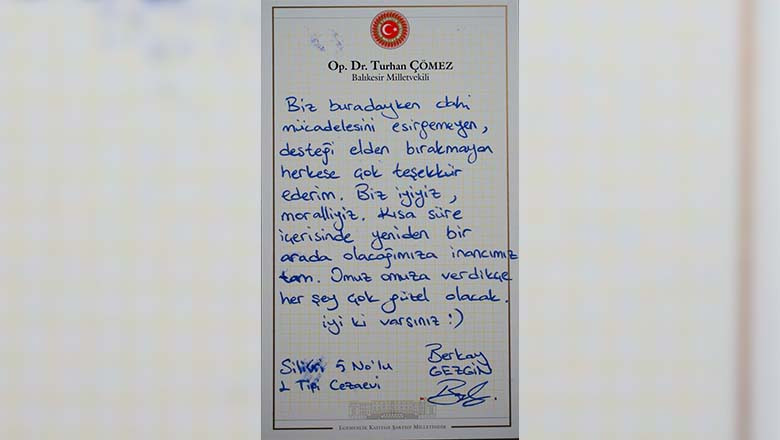 Op. Dr. Turhan ÇÖMEZ
Balıkesir Milletvekili
Biz buradayken dahi
mücadelesini esirgemeyen,
desteği elden bırakmayan
herkese çok teşekkür
ederim. Biz iyiyiz,
moralliyiz. Kısa süre
içerisinde yeniden bir
arada olacağımıza inancımız
tam. Omuz omuza verdikçe
her şey çok güzel olacak.
iyi ki varsınız :)
Silivri 5 No'lu
L Tipi Cezaevi
Berkay
GEZGİN
EGEMENLİK KAYITSIZ ŞARTSIZ MİLLETİNDİR